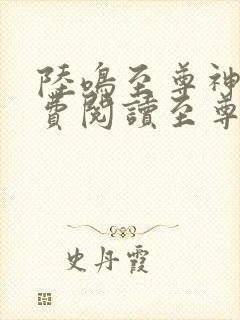 陸鳴至尊神
費閱讀至尊
史丹霞